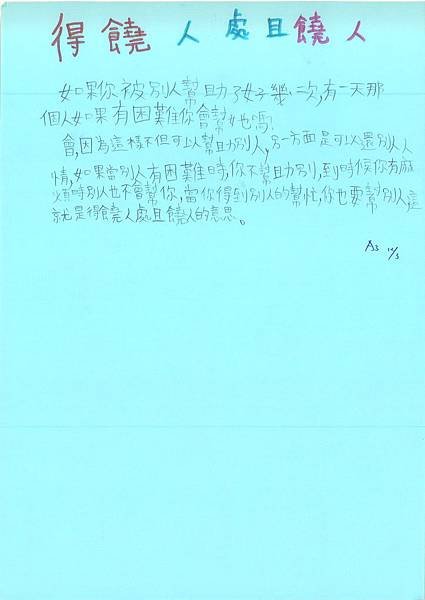 得饒人處且饒人
如果你被別人幫助了好幾次,有一天那
個人如果有困難你會幫他嗎?
會,因為這樣不但可以幫助別人,另一方面是可以還別人人
情,如果當別人有困難時,你不幫助別,到時候你有麻
煩時別人也不會幫你,當你得到別人的幫忙,你也要幫別人這
就是得饒人處且饒人的意思。
A3 12/3